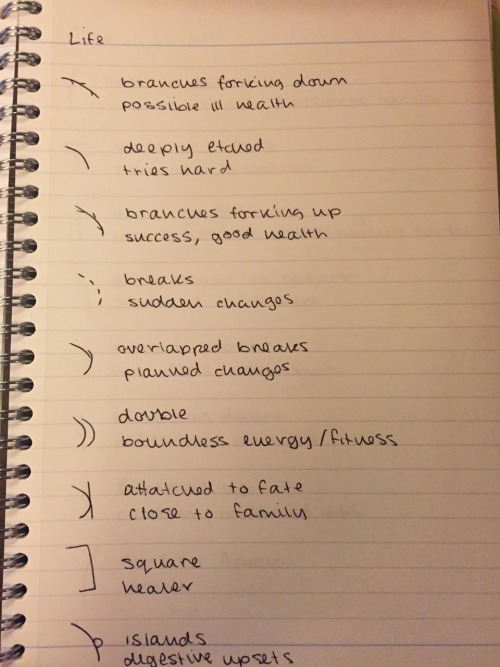 Life
branches forking down
possible ill health
deeply etched
tries hard
branches forking up
success, good health
breaks
sudden changes
overlapped breaks
planned changes
double
boundless energy/fitness
attatched to fate
close to family
square
healer
islands
digestive upsets